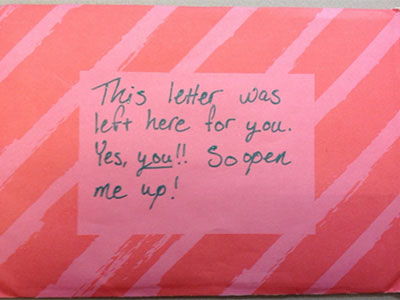 This letter was
left here for you.
Yes, you!! So open
me up!